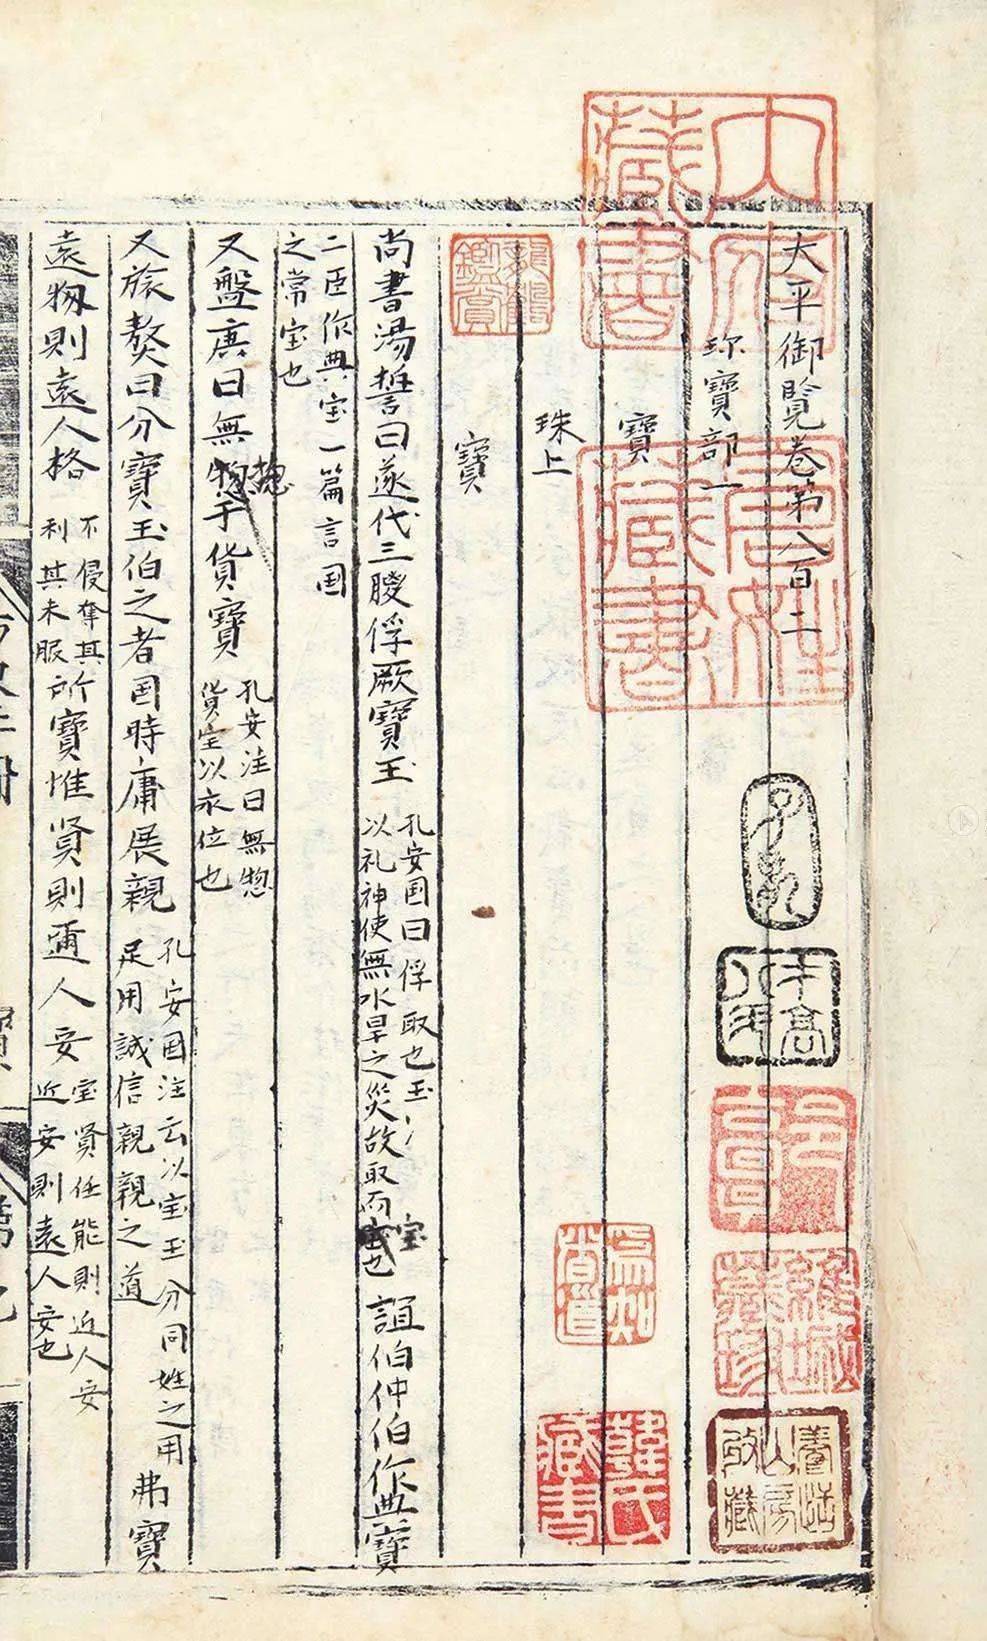 大平御覽卷第八百二
珎寶部一
寶
珠上
寶
尚書湯誓曰遂代三朡俘厥寶玉
孔安国曰俘取也玉
以礼神使無水旱之災故取而宝也
誼伯仲伯作典寶
二臣作典宝一篇言国
之常宝也
又盤庚曰無惣于貨寶
孔安注曰無惣
貨宝以永位也
又旅獒曰分寶玉伯之者国時庸展親
孔安国注云以宝玉分同姓之用
足用誠信親親之道
弗寶
遠物則遠人格
不侵奪其
利其未服
所寶惟贤則邇人安
宝贤任能則近人安
近安則遠人安也
韓氏藏書